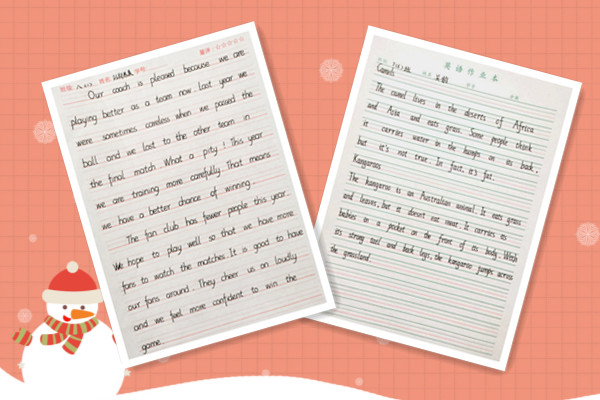 Our coach is pleased because we are
playing better as a team now. Last year we
were sometimes careless when we passed the
ball and we lost to the other team in
the final match. What a pity! This year
we are training more carefully. That means
we have a better chance of winning.
The fan club has fewer people this year.
We hope to play well so that we have more
fans to watch the matches. It is good to have
our fans around. They cheer us on loudly
and we feel more confident to win the
game.
英语作业本
Camels
The camel lives in the deserts of Africa
and Asia and eats grass. Some people think
it carries water in the humps on its back,
but it's not true. In fact, it's fat.
Kangaroos
The kangaroo is an Australian animal. It eats grass
and leaves, but it doesn't eat meat. It carries its
babies in a pocket on the front of its body. With
its strong tail and back legs, the kangaroo jumps across
the grassland.